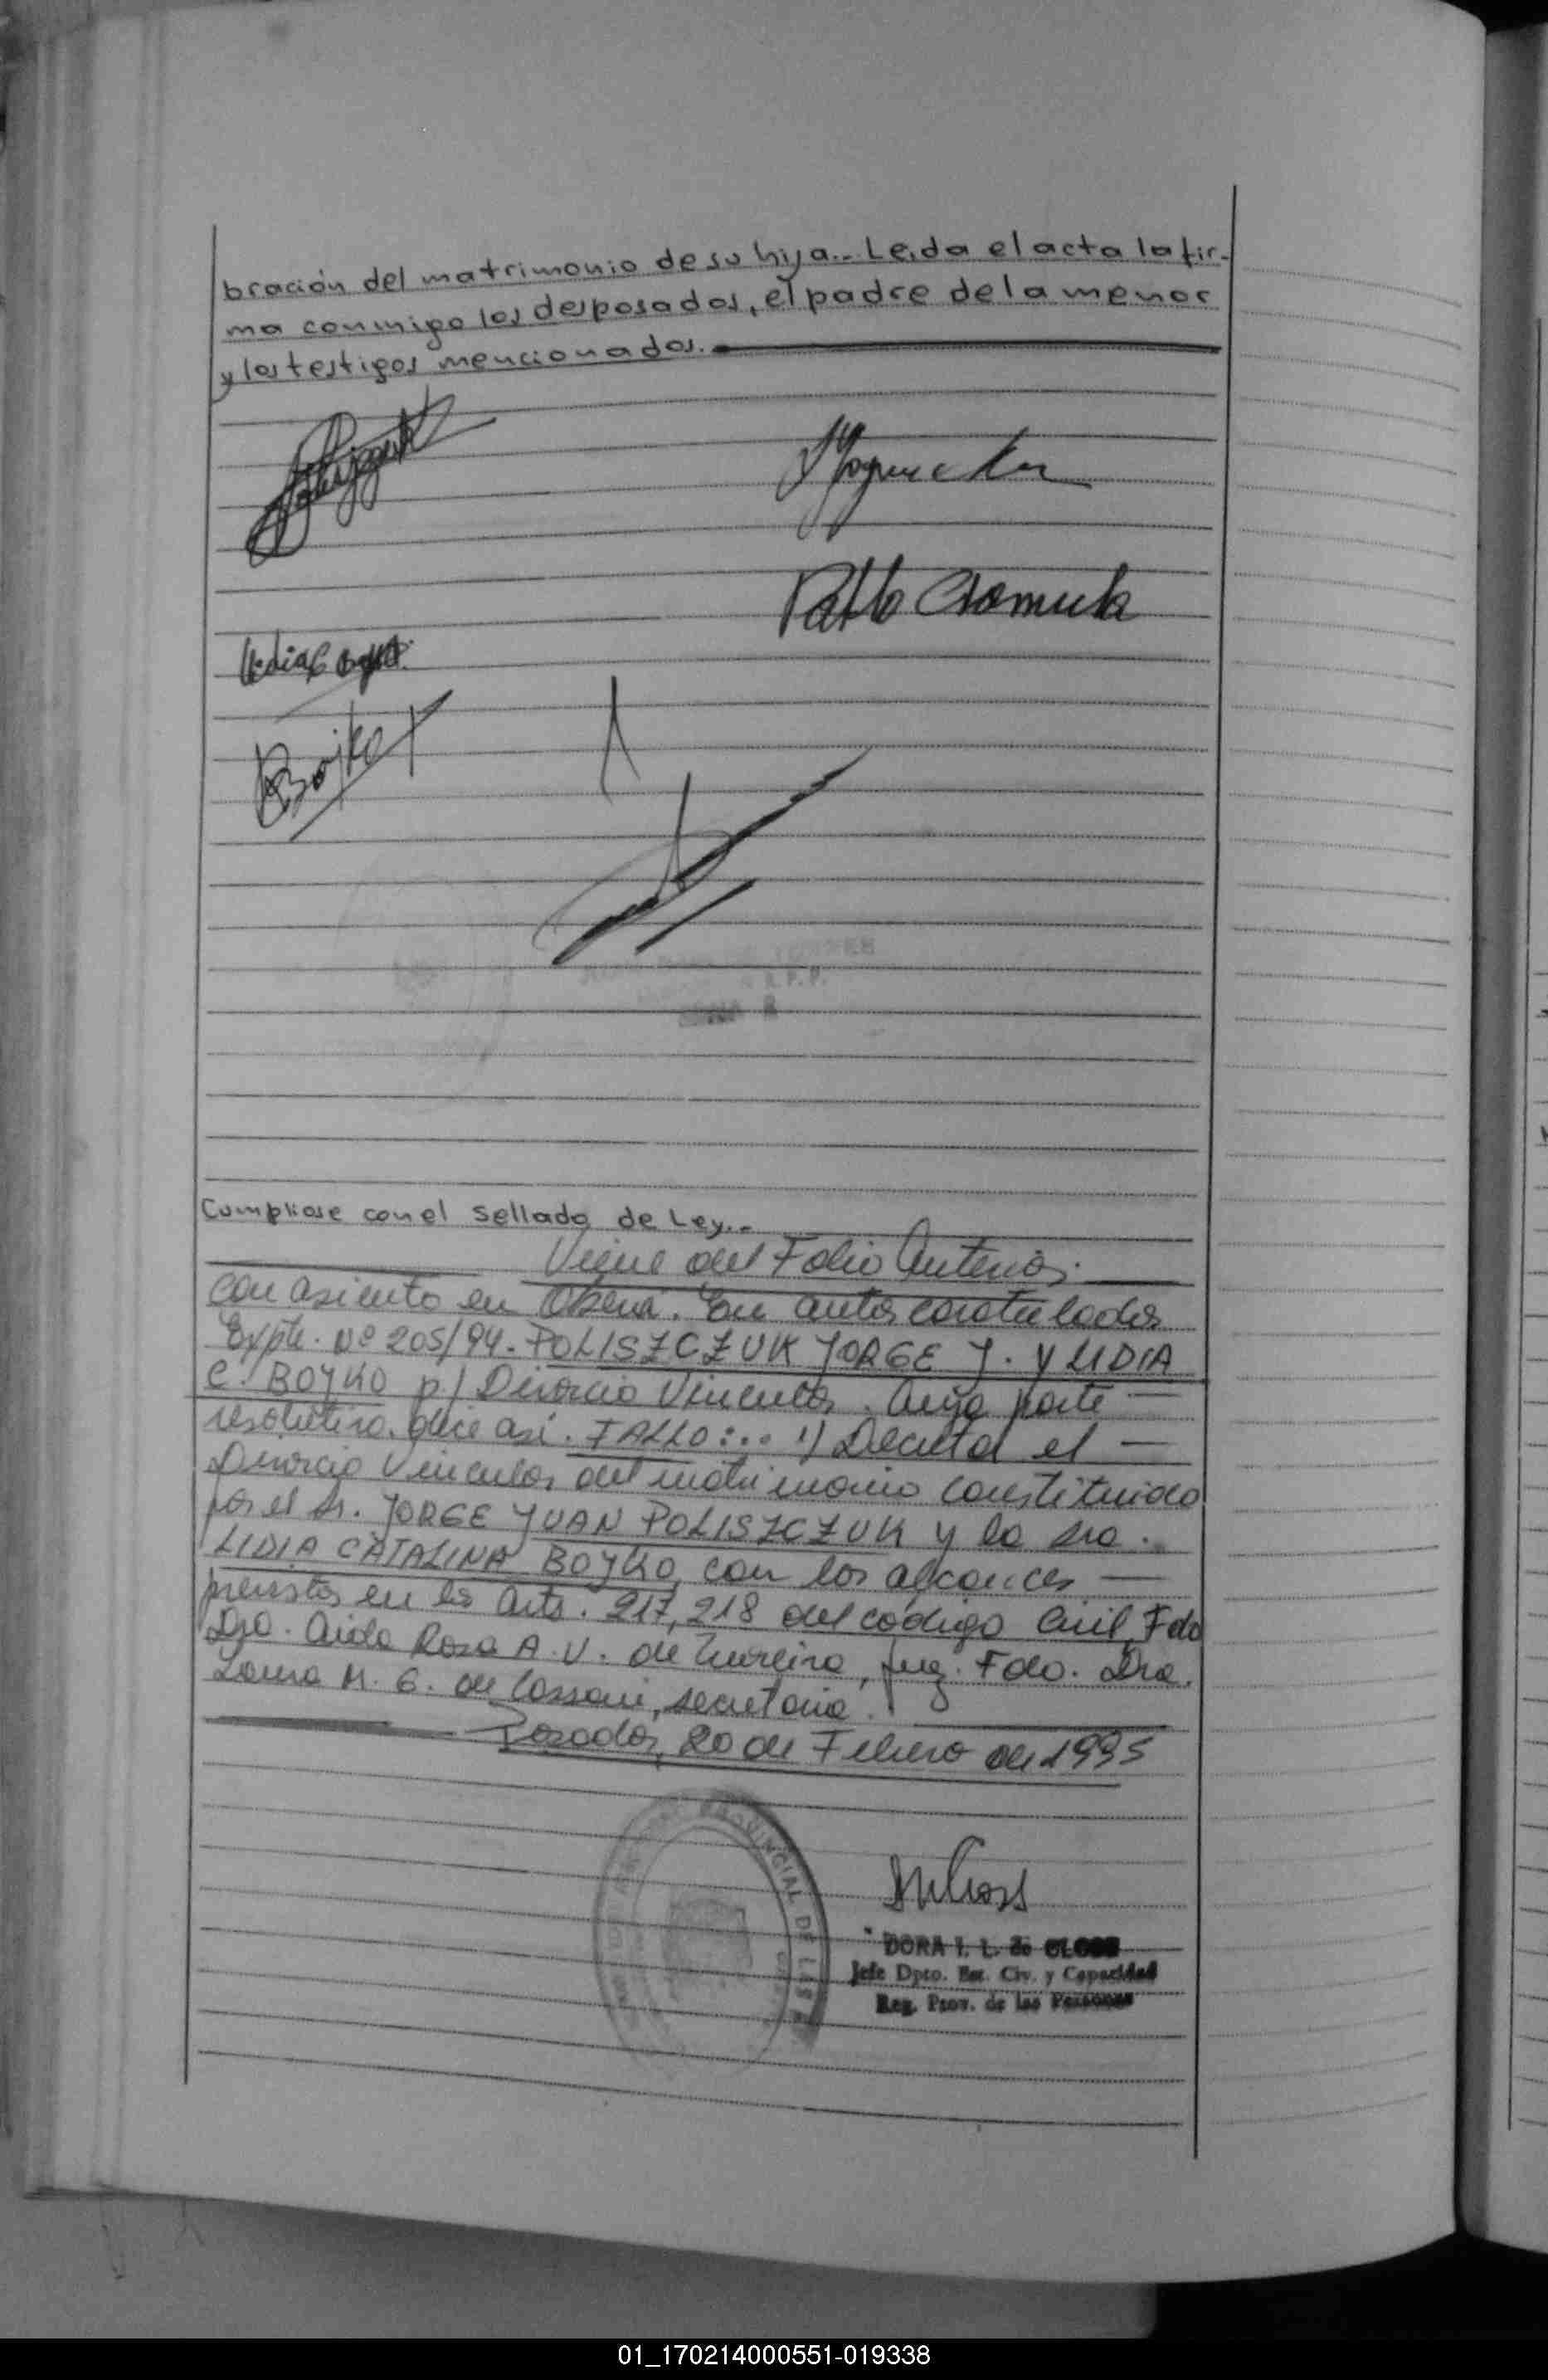 bración del matrimonio de su hija.. Leida el acta la fir-
ma conmigo los desposados, el padre de la menor
y los testigos mencionados.
Pablo
Lidia
Boyko
Cumpliose con el sellado de Ley..-
Viene del Folio Anterior.
con asiento en Oberá. En autos caratulados
Expte. Nº 205/94. POLISZCZUK JORGE J. Y LIDIA
C. BOYKO p/ Divorcio Vincular. Cuya parte
resolutiva, dice así. FALLO:... 1) Decretar el
Divorcio Vincular del matrimonio constituido
por el Sr. JORGE JUAN POLISZCZUK y la Sra.
LIDIA CATALINA BOYKO, con los alcances
previstos en los Arts. 217, 218 del código Civil, Fdo
Dra. Aida Rosa A. V. de, Juez. Fdo. Dra.
Laura M. G. de, secretaria.
Posadas, 20 de Febrero de 1995
PROVINCIAL DE LAS
DORA I. L. de
Jefe Dpto. Est. Civ. y Capacidad
Reg. Prov. de las Personas
01_170214000551-019338